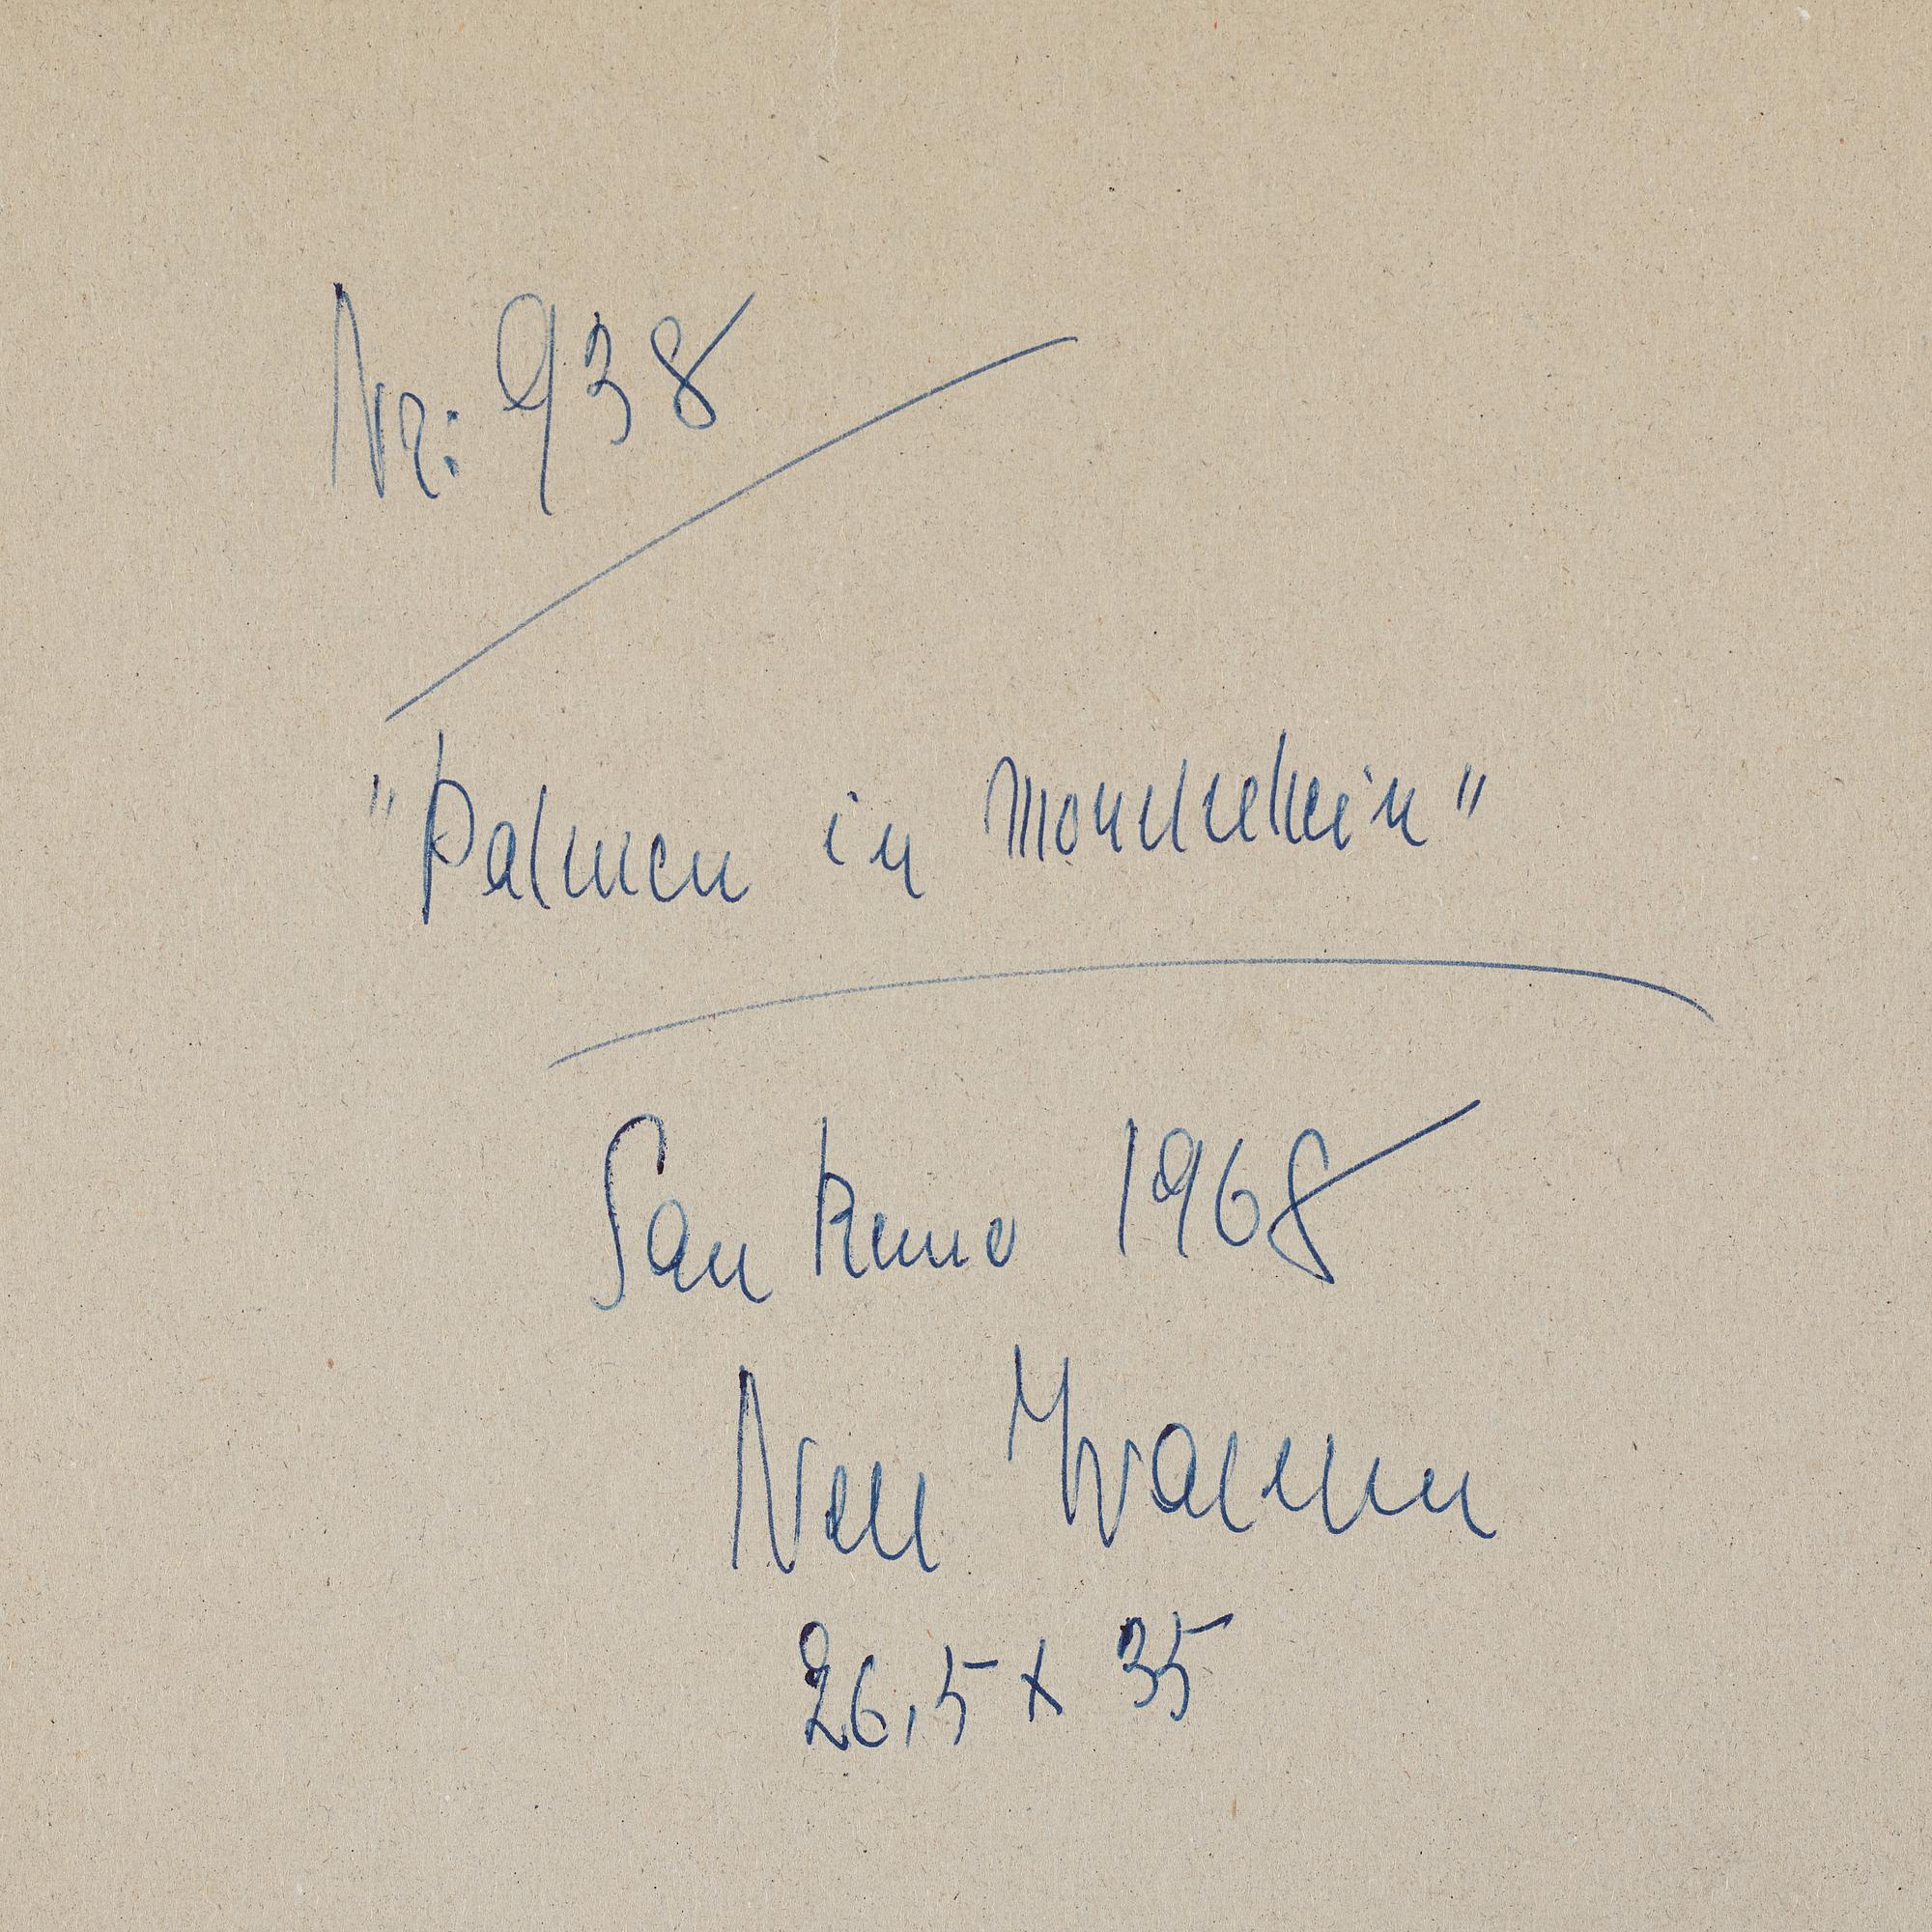 Nr: 938
"Palmen in Mondschein"
San Remo 1968
Nell Walden
26,5 x 35